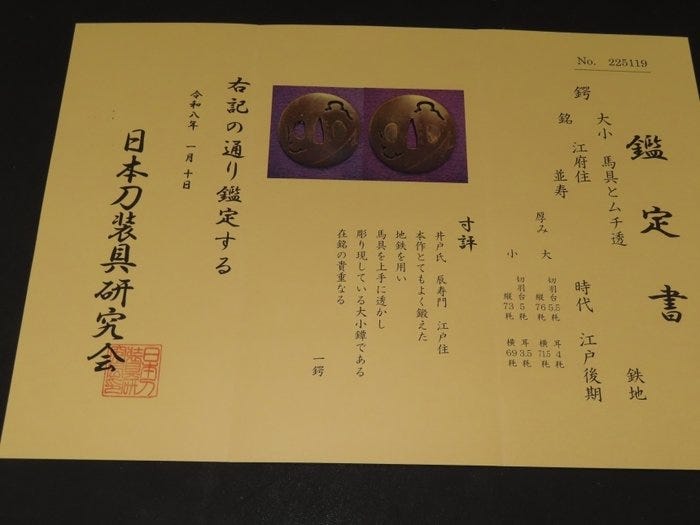 No. 225119
鑑定書
鉄地
大小 馬具とムチ透
鍔
銘 江府住 並寿
時代 江戸後期
厚み 大 切羽台5.5 耳4粍
縦76粍 横71.5粍
小 切羽台5粍 耳3.5粍
縦73粍 横69粍
寸評
井戸氏 辰寿門 江戸住
本作とてもよく鍛えた
地鉄を用い
馬具を上手に透かし
彫り現している大小鐔である
在銘の貴重なる
一鍔
右記の通り鑑定する
令和八年 一月十日
日本刀装具研究会